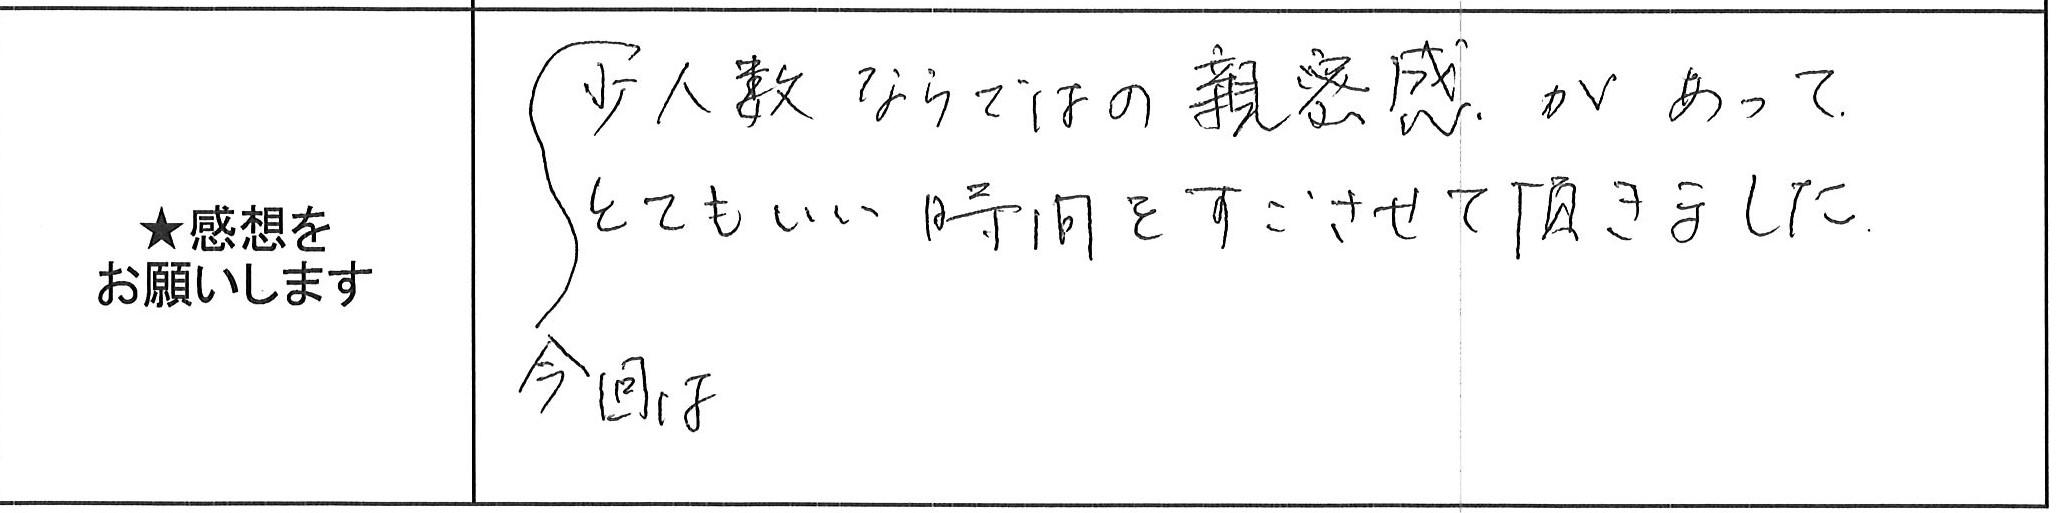 ★感想を
お願いします
少人数ならではの親密感があって
とてもいい時間をすごさせて頂きました.
今回は